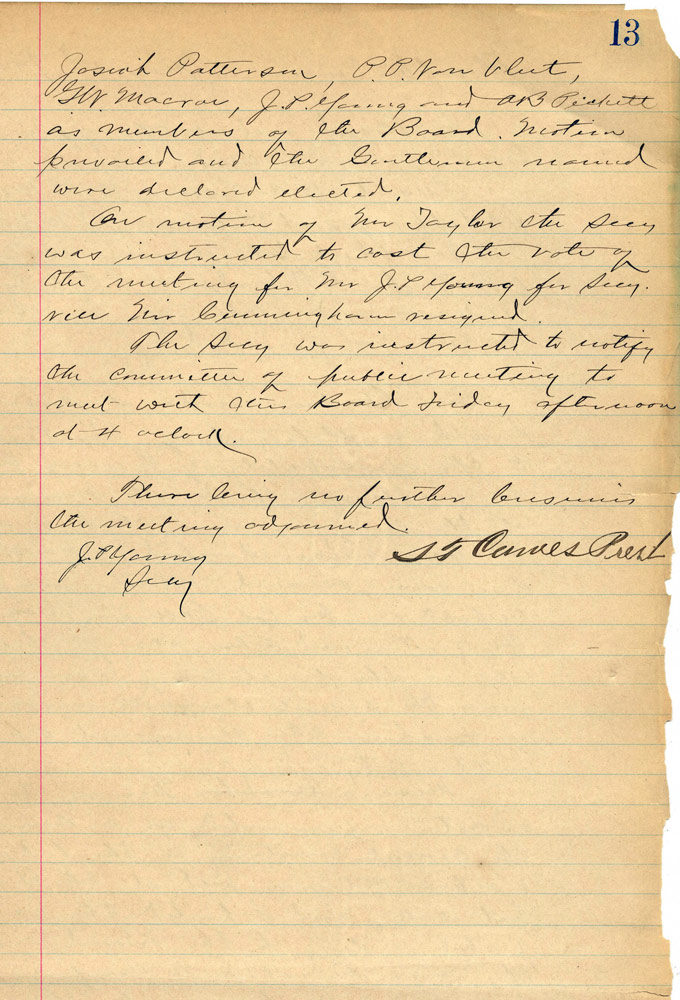 13
Josiah Patterson, P.P. Van Vleet,
G.W. Macrae, J.P. Young and A.B. Pickett
as members of the Board. Motion
prevailed and the Gentlemen named
were declared elected.
On motion of Mr Taylor the Secy
was instructed to cast the vote of
the meeting for Mr J.P. Young for Secy.
vice Mr Cunningham resigned.
The Secy was instructed to notify
the committee of public meeting to
meet with this Board Friday afternoon
at 4 oclock.
There being no further business
the meeting adjourned.
J.P. Young
Secy
S T Carnes Prest